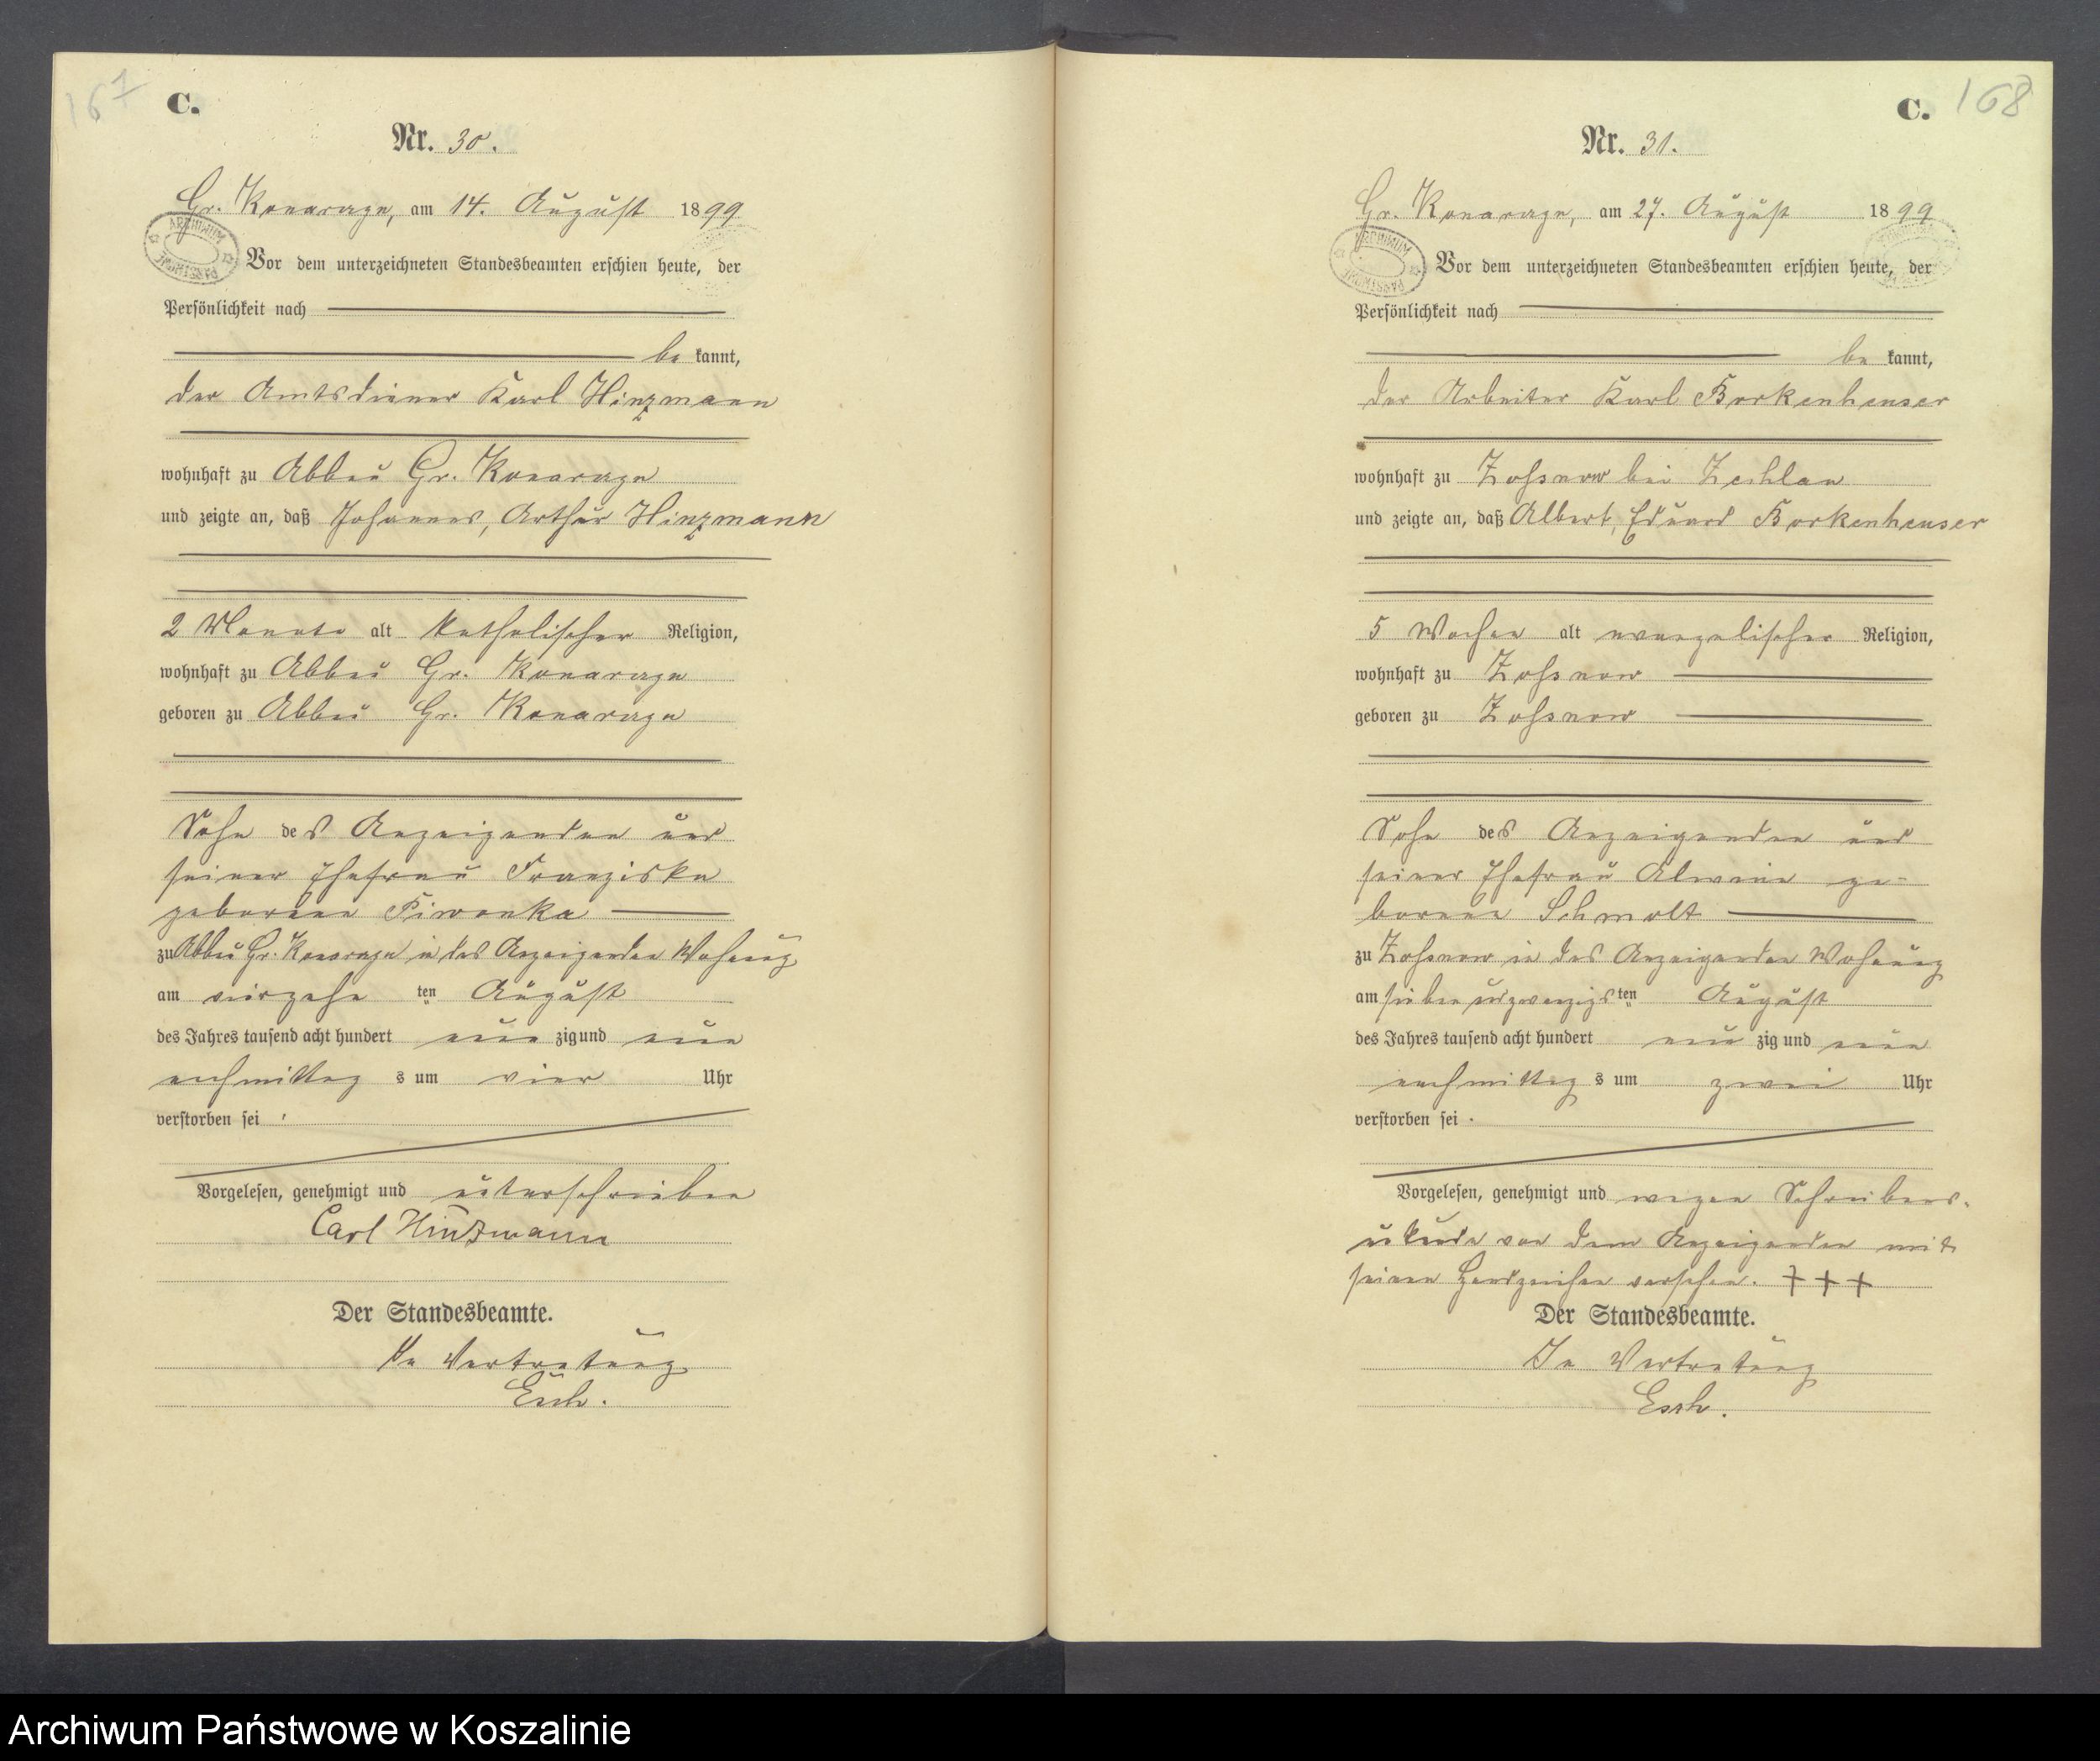 167
C.
Nr. 30.
Gr. Konarzyn, am 14. August 1899
Vor dem unterzeichneten Standesbeamten erschien heute, der
Persönlichkeit nach
be kannt,
der Amtsdiener Karl Hinzmann
wohnhaft zu Abbau Gr. Konarzyn
und zeigte an, daß Johannes, Arthur Hinzmann
2 Monate alt katholischer Religion,
wohnhaft zu Abbau Gr. Konarzyn
geboren zu Abbau Gr. Konarzyn
Sohn des Anzeigenden und
seiner Ehefrau Franziska
geborene Piwonka
zu Abbau Gr. Konarzyn in des Anzeigenden Wohnung
am vierzehn ten August
des Jahres tausend acht hundert neun zig und neun
nachmittag s um vier Uhr
verstorben sei
Vorgelesen, genehmigt und unterschrieben
Carl Hinzmann
Der Standesbeamte.
In Vertretung
Esch.
C. 168
Nr. 31.
Gr. Konarzyn, am 27. August 1899
Vor dem unterzeichneten Standesbeamten erschien heute, der
Persönlichkeit nach
be kannt,
der Arbeiter Karl Borkenheuser
wohnhaft zu Zossnow bei Zechlau
und zeigte an, daß Albert, Eduard Borkenheuser
5 Wochen alt evangelischer Religion,
wohnhaft zu Zossnow
geboren zu Zossnow
Sohn des Anzeigenden und
seiner Ehefrau Alwine ge-
borene Schmolt
zu Zossnow in des Anzeigenden Wohnung
am sieben und zwanzigs ten August
des Jahres tausend acht hundert neun zig und neun
nachmittag s um zwei Uhr
verstorben sei.
Vorgelesen, genehmigt und wegen Schreibens-
unkunde von dem Anzeigenden mit
seinen Handzeichen versehen. +++
Der Standesbeamte.
In Vertretung
Esch.
Archiwum Państwowe w Koszalinie